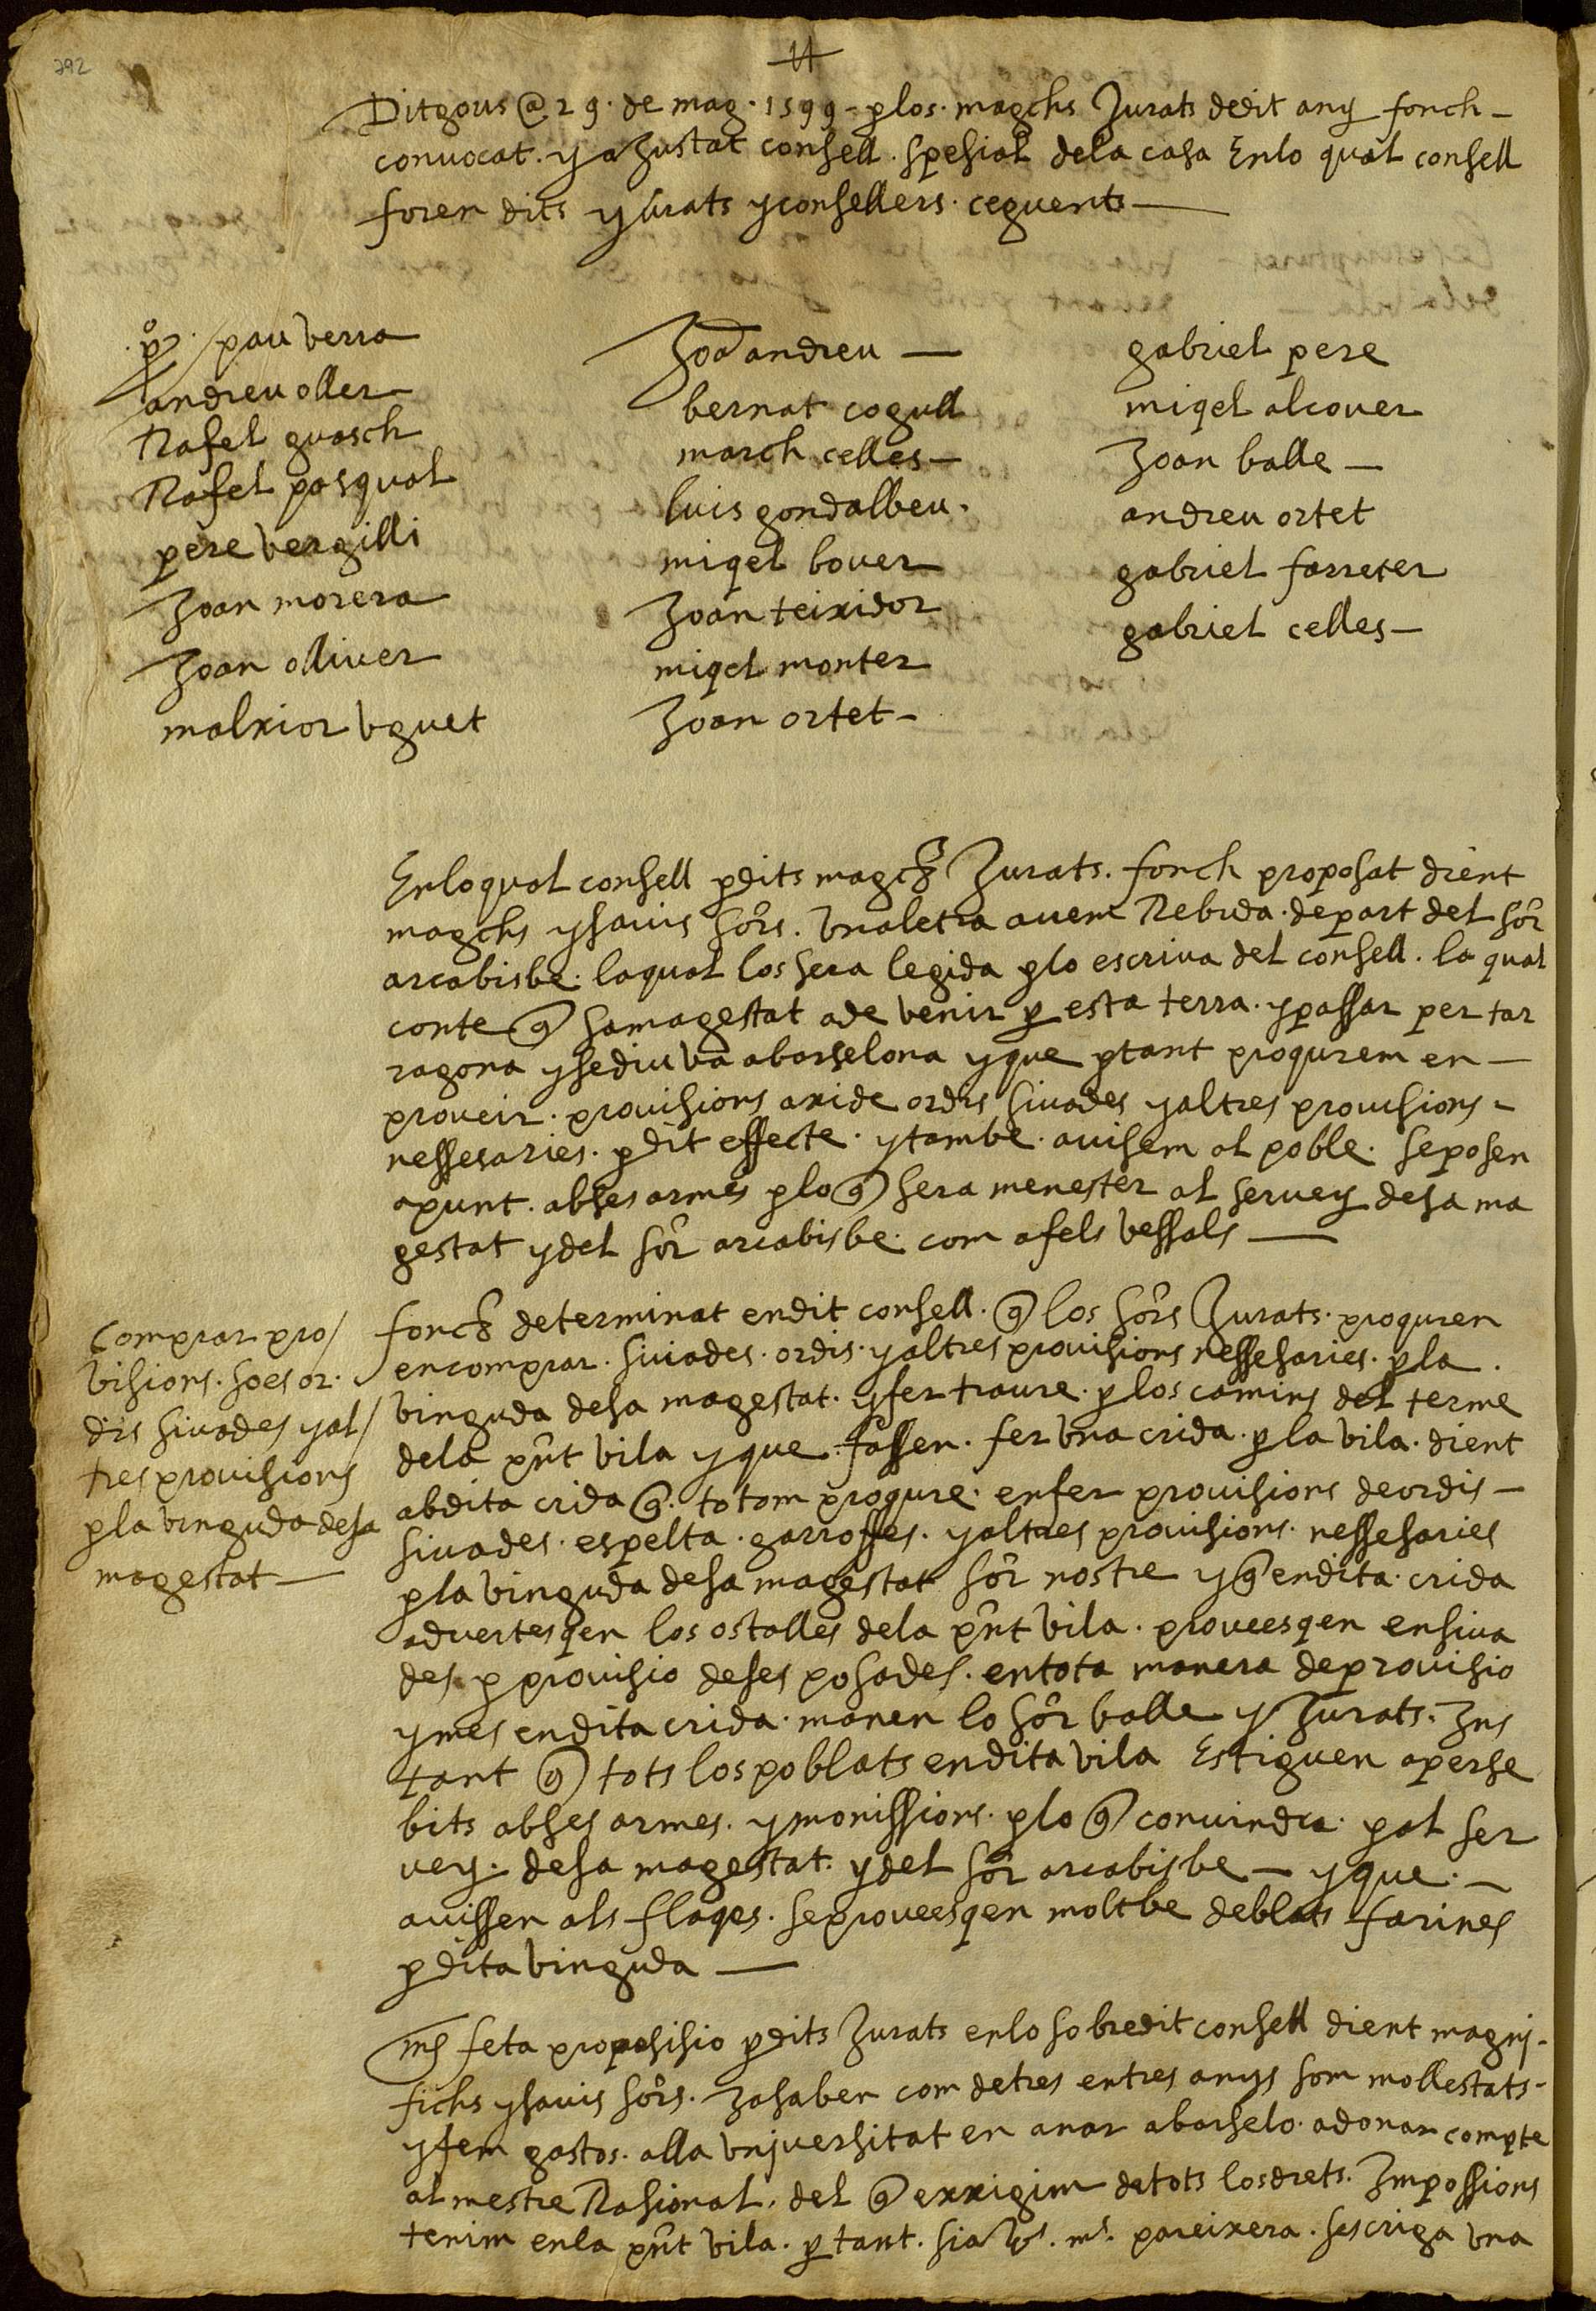 292
Ditgous @ 29 · de mag · 1599 - plos · magchs Jurats dedit any fonch -
convocat · y aJustat consell · spesial dela casa Enlo qual consell
foren dits yurats yconsellers · ceguents —
pº · pau verra
andreu oller -
Rafel guasch
Rafel pasqual
pere vergilli
Joan morera
Joan olliver
malxior vguet
Joã andreu —
bernat cogull
march celles -
luis gondalbeu ·
miqel bover
Joan teixidor
miqel monter
Joan ortet -
gabriel pere
miqel alcover
Joan balle —
andreu ortet
gabriel farreter
gabriel celles —
Enloqual consell pdits magch Jurats · fonch proposat dient
magchs ysavis sors · vnaletra avem Rebuda · depart del sor
arcabisbe · laqual los sera legida plo escriva del consell · la qual
conte q samagestat ade venir p esta terra · ypassar per tar
ragona ysediu va abarselona yque ptant proqurem en —
proveir · provisions axide ordis sivades yaltres provisions -
nessesaries · pdit effecte · ytambe · avisem al poble · seposen
apunt · abses armes plo q sera menester al servey desa ma
gestat ydel sor arcabisbe · com afels vessals —
Comprar pro/
visions · soes or ·
dis sivades yal/
tres provisions
pla vinguda desa
magestat —
fonch determinat endit consell · q los sors Jurats · proquren
encomprar · sivades · ordis · yaltres provisions nessesaries · pla ·
vinguda desa magestat · yfer traure · plos camins del terme
dela pnt vila yque fassen · fer vna crida · pla vila · dient
abdita crida q · totom proqure · enfer provisions deordis —
sivades · espelta · garroffes · yaltres provisions · nessesaries
pla vinguda desa magestat sor nostre y q endita · crida
advertesqen los ostalles dela pnt vila · proveesqen ensiva
des p provisio deses posades · entota manera deprovisio
ymes endita crida · manen lo sor balle y Jurats · Ins
tant q tots los poblats endita vila Estiguen aperse
bits abses armes · ymonissions · plo q convindra · pal ser
vey · desa magestat · ydel sor arcabisbe — yque · —
avissen als flaqes · seproveesqen moltbe deblats farines
pdita vinguda —
ms feta proposisio pdits Jurats enlo sobredit consell dient magni -
fichs ysavis sors · Jasaben com detres entres anys som mollestats -
yfem gastos · alla vniversitat en anar abarselo · adonar compte
al mestre Rasional · del q exxigim detots losdrets · Impossions
tenim enla pnt vila · p tant · sia vs · ms · pareixera · sescriga vna